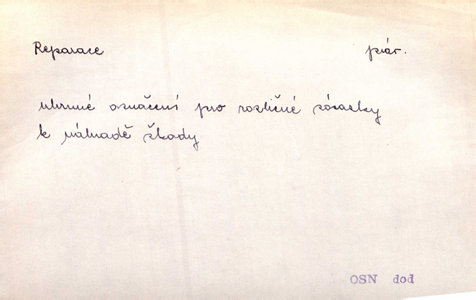 Reparace piár.
úhrnné označení pro rozličné závazky
k náhradě škody
OSN dod